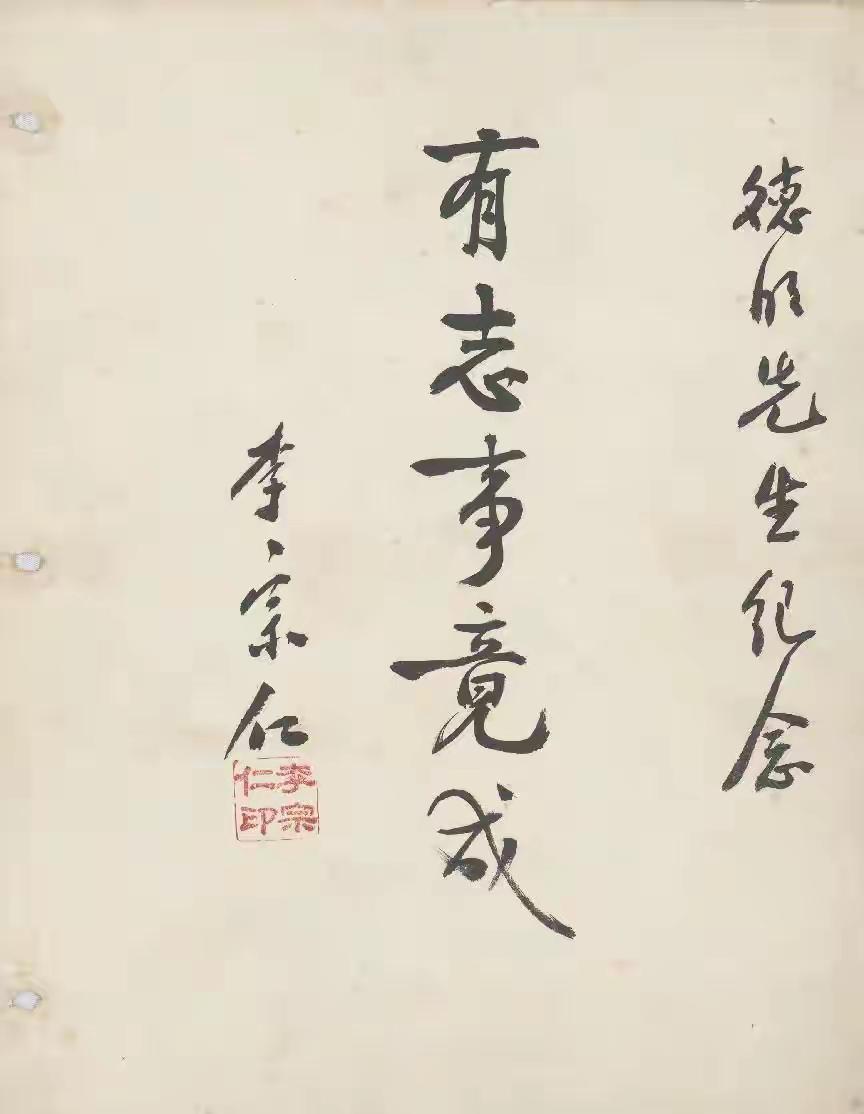 德明先生紀念
有志事竟成
李宗仁
李宗
仁印